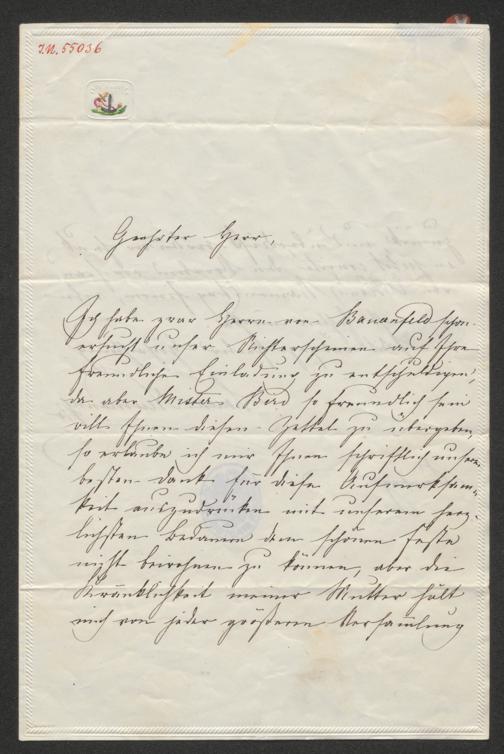 I.N. 55036
Geehrter Herr,
Ich habe zwar Herrn von Bauernfeld schon
ersucht unser Nichterscheinen auf Ihre
freundliche Einladung zu entschuldigen,
da aber Mister Berd so freundlich sein
will Ihnen diesen Zettel zu übergeben,
so erlaube ich mir Ihnen schriftlich unsern
besten Dank für diese Aufmerksam-
keit auszudrücken mit unserem herz-
lichsten Bedauern dem schönen Feste
nicht beiwohnen zu können, aber die
Kränklichkeit meiner Mutter hält
mich von jeder größeren Versammlung